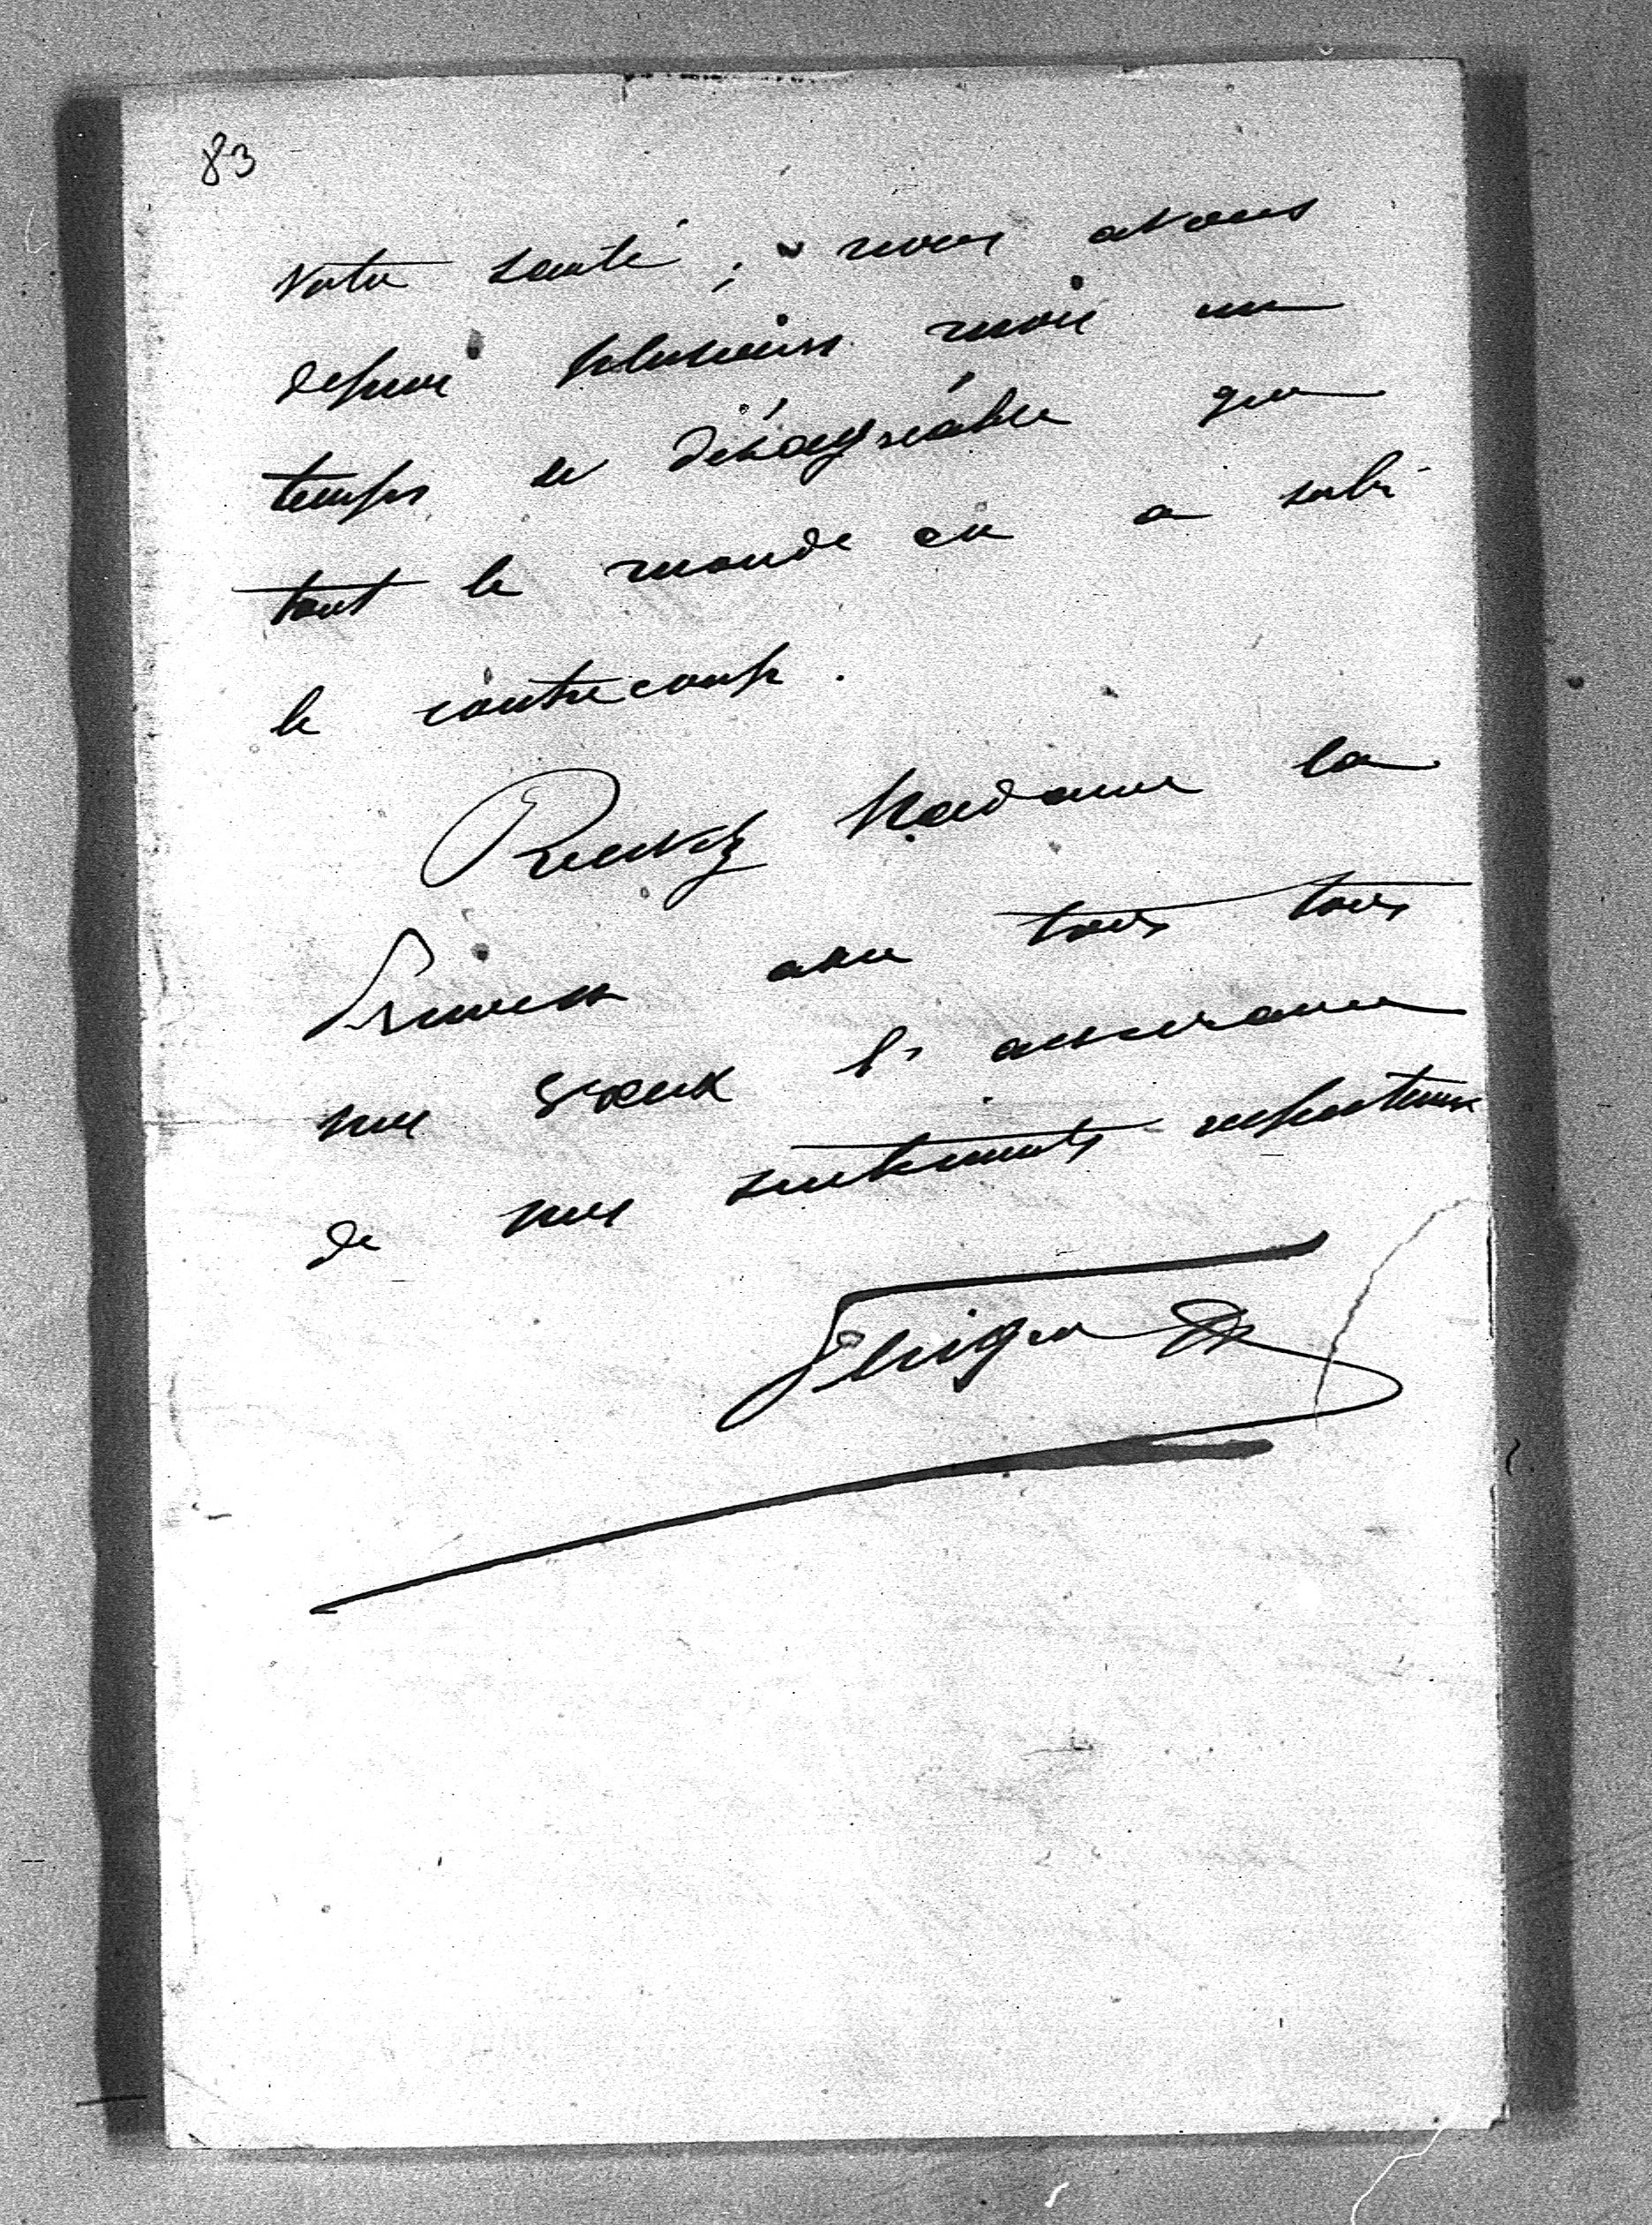 83
votre santé ; nous avons
depuis plusieurs mois un
temps si désagréable que
tout le monde en a subi
le contrecoup.
Recevez Madame la
Princesse avec tous tous
mes voeux l'assurance
de mes sentiments respectueux